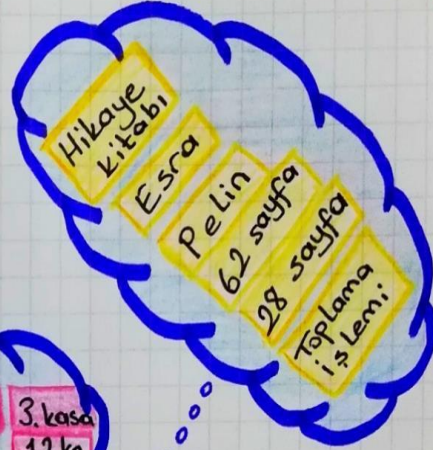 Hikaye
kitabı
Esra
Pelin
62 sayfa
28 sayfa
Toplama
işlemi
3. kasa